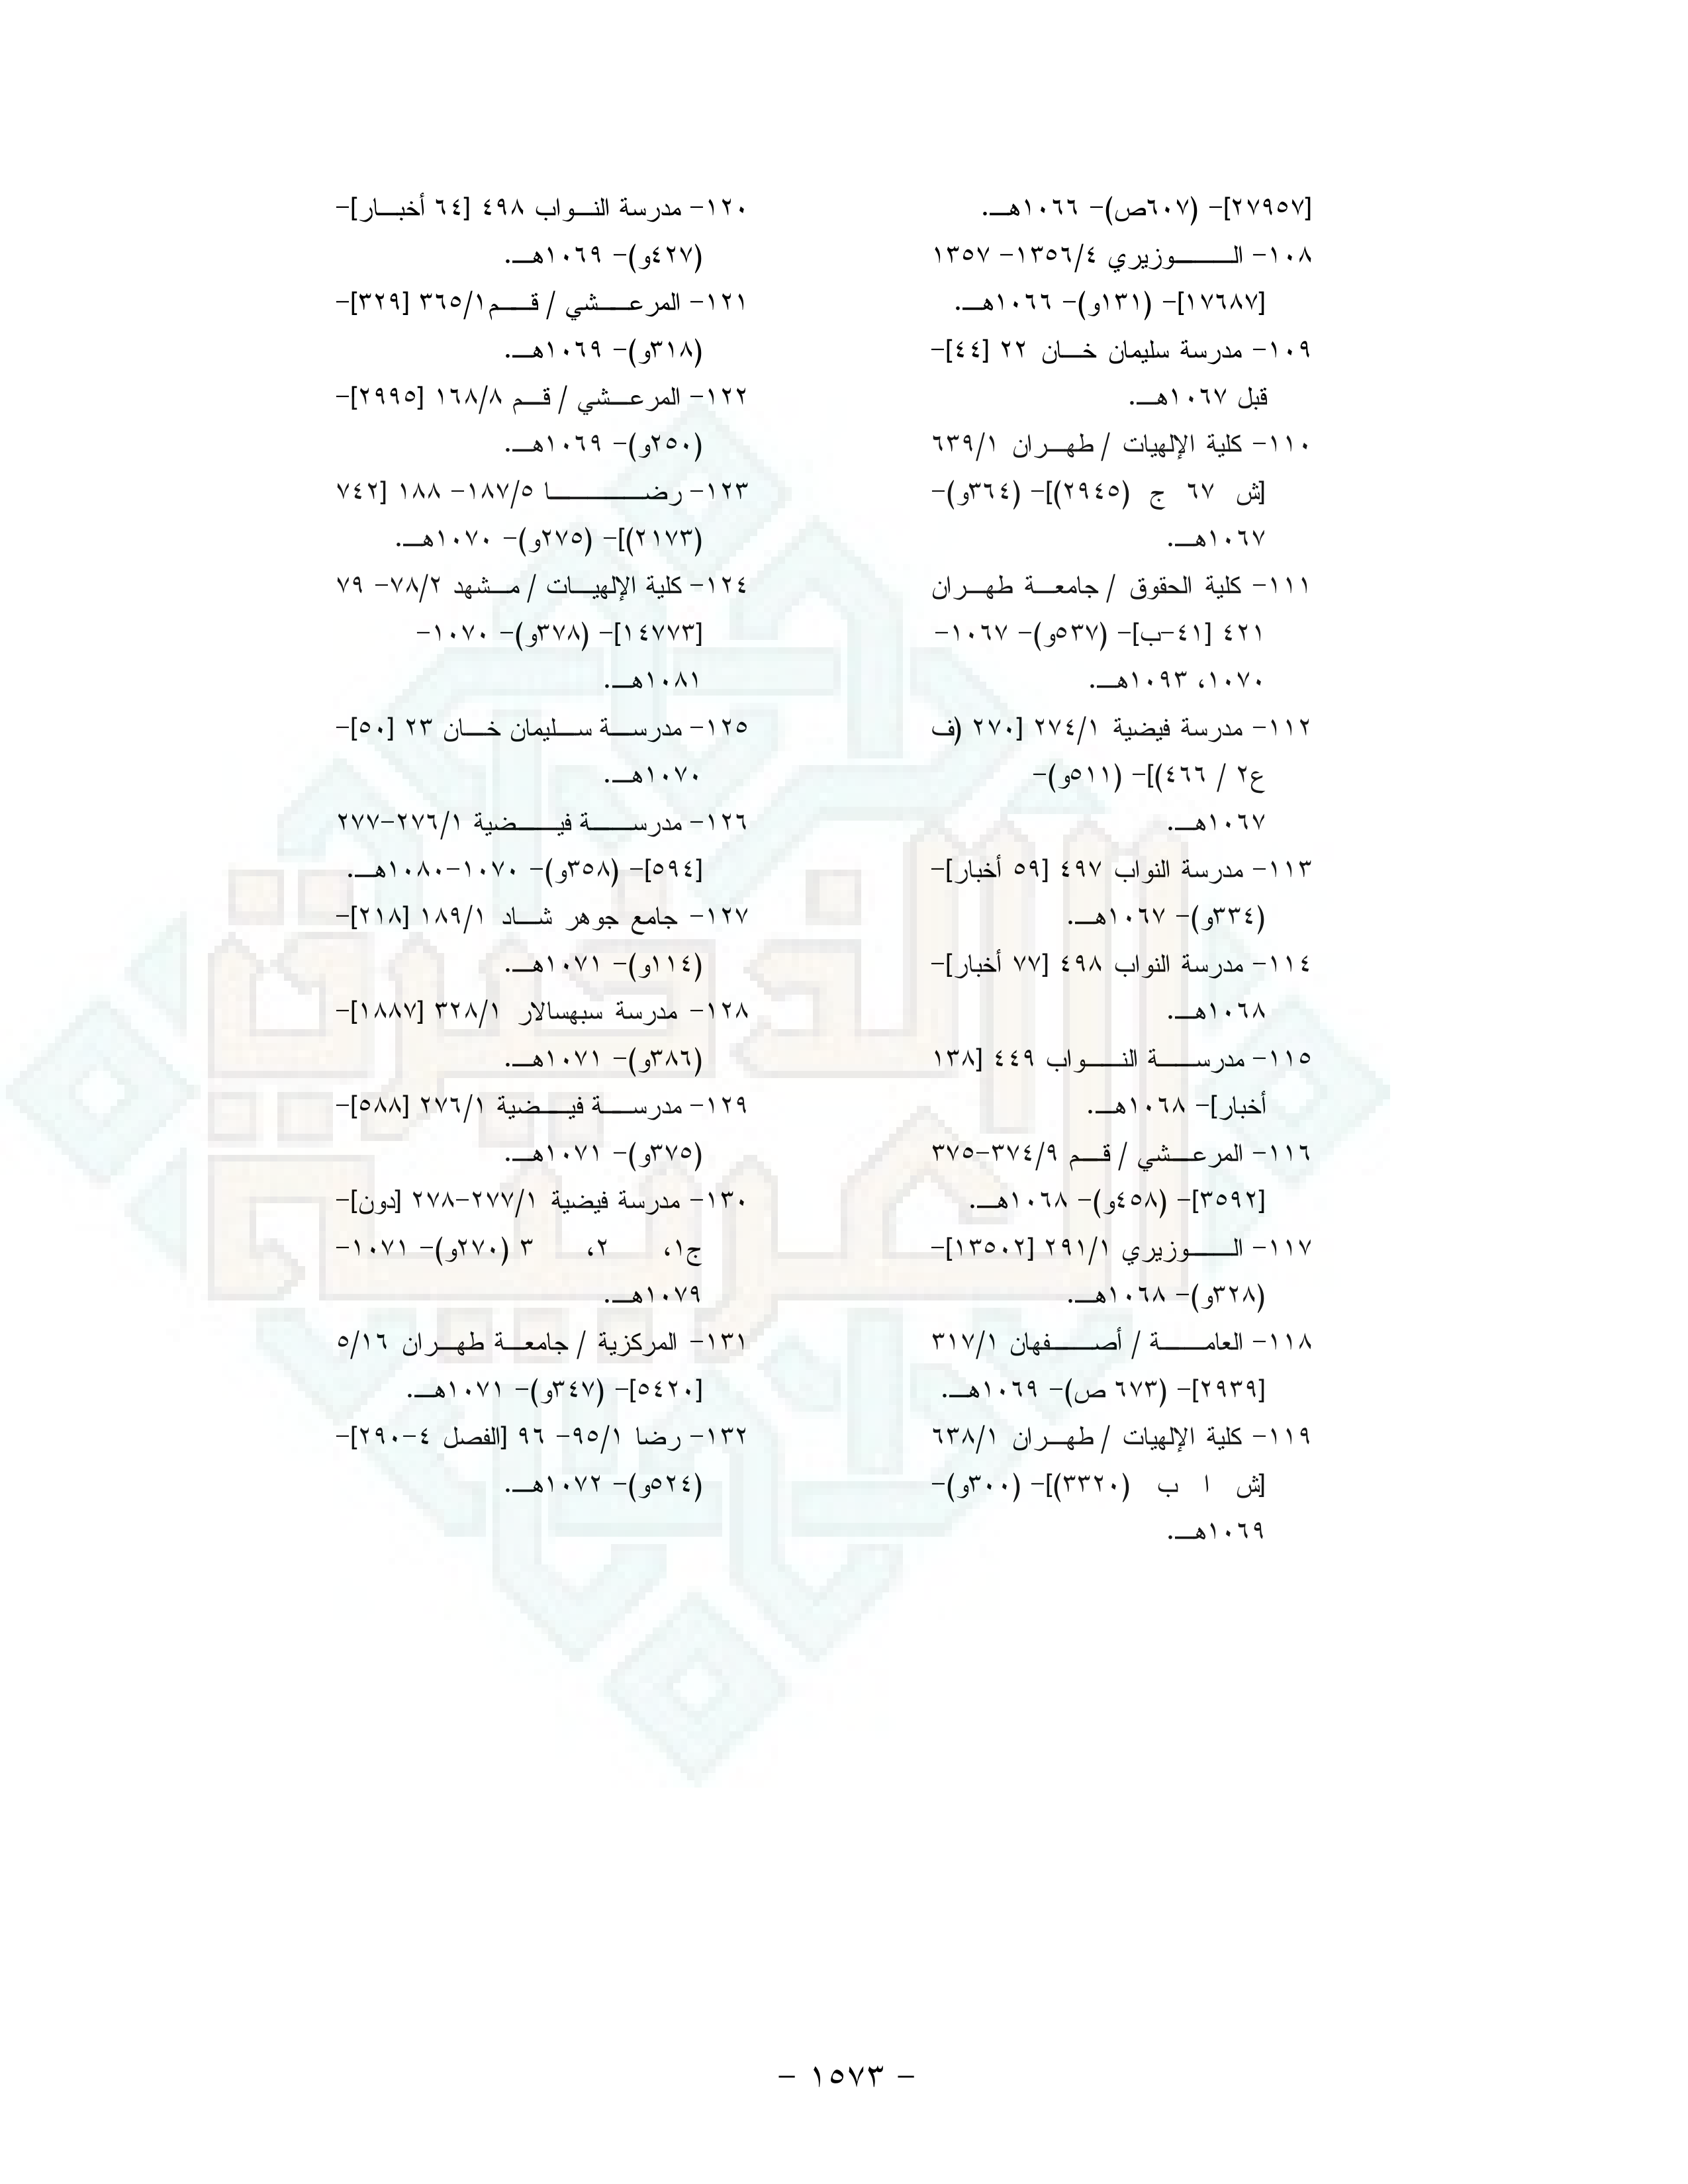 [٢٧٩٥٧]- (٦٠٧ص)- ١٠٦٦هـ.
١٠٨- الوزيري ١٣٥٦/٤- ١٣٥٧
[١٧٦٨٧]- (١٣١و)- ١٠٦٦هـ.
١٠٩- مدرسة سليمان خان ٢٢ [٤٤]-
قبل ١٠٦٧هـ.
١١٠- كلية الإلهيات / طهران ٦٣٩/١
[ش ٦٧ ج (٢٩٤٥)]- (٣٦٤و)-
١٠٦٧هـ.
١١١- كلية الحقوق / جامعة طهران
٤٢١ [٤١-ب]- (٥٣٧و)- ١٠٦٧-
١٠٧٠، ١٠٩٣هـ.
١١٢- مدرسة فيضية ٢٧٤/١ [٢٧٠ (ف
ع٢ / ٤٦٦)]- (٥١١و)-
١٠٦٧هـ.
١١٣- مدرسة النواب ٤٩٧ [٥٩ أخبار]-
(٣٣٤و)- ١٠٦٧هـ.
١١٤- مدرسة النواب ٤٩٨ [٧٧ أخبار]-
١٠٦٨هـ.
١١٥- مدرسة النواب ٤٤٩ [١٣٨
أخبار]- ١٠٦٨هـ.
١١٦- المرعشي / قم ٣٧٤/٩-٣٧٥
[٣٥٩٢]- (٤٥٨و)- ١٠٦٨هـ.
١١٧- الوزيري ٢٩١/١ [١٣٥٠٢]-
(٣٢٨و)- ١٠٦٨هـ.
١١٨- العامة / أصفهان ٣١٧/١
[٢٩٣٩]- (٦٧٣ ص)- ١٠٦٩هـ.
١١٩- كلية الإلهيات / طهران ٦٣٨/١
[ش ا ب (٣٣٢٠)]- (٣٠٠و)-
١٠٦٩هـ.
١٢٠- مدرسة النواب ٤٩٨ [٦٤ أخبار]-
(٤٢٧و)- ١٠٦٩هـ.
١٢١- المرعشي / قم٣٦٥/١ [٣٢٩]-
(٣١٨و)- ١٠٦٩هـ.
١٢٢- المرعشي / قم ١٦٨/٨ [٢٩٩٥]-
(٢٥٠و)- ١٠٦٩هـ.
١٢٣- رضا ١٨٧/٥- ١٨٨ [٧٤٢
(٢١٧٣)]- (٢٧٥و)- ١٠٧٠هـ.
١٢٤- كلية الإلهيات / مشهد ٧٨/٢- ٧٩
[١٤٧٧٣]- (٣٧٨و)- ١٠٧٠-
١٠٨١هـ.
١٢٥- مدرسة سليمان خان ٢٣ [٥٠]-
١٠٧٠هـ.
١٢٦- مدرسة فيضية ٢٧٦/١-٢٧٧
[٥٩٤]- (٣٥٨و)- ١٠٧٠-١٠٨٠هـ.
١٢٧- جامع جوهر شاد ١٨٩/١ [٢١٨]-
(١١٤و)- ١٠٧١هـ.
١٢٨- مدرسة سبهسالار ٣٢٨/١ [١٨٨٧]-
(٣٨٦و)- ١٠٧١هـ.
١٢٩- مدرسة فيضية ٢٧٦/١ [٥٨٨]-
(٣٧٥و)- ١٠٧١هـ.
١٣٠- مدرسة فيضية ٢٧٧/١-٢٧٨ [دون]-
ج١، ٢، ٣ (٢٧٠و)- ١٠٧١-
١٠٧٩هـ.
١٣١- المركزية / جامعة طهران ٥/١٦
[٥٤٢٠]- (٣٤٧و)- ١٠٧١هـ.
١٣٢- رضا ٩٥/١- ٩٦ [الفصل ٤-٢٩٠]-
(٥٢٤و)- ١٠٧٢هـ.
- ١٥٧٣ -
الذخيرة
العربية